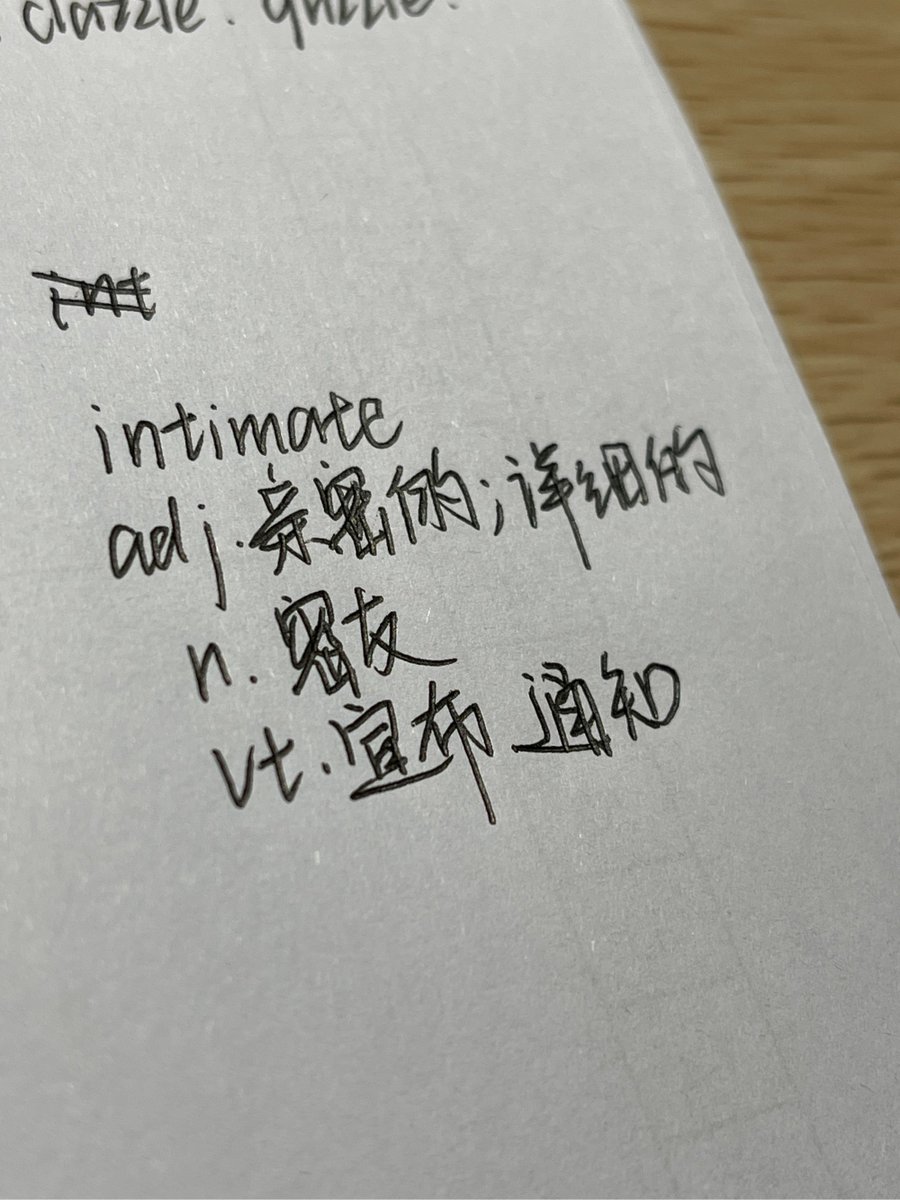 dazzle.
intimate
adj.亲密的;详细的
n.密友
vt.宣布 通知